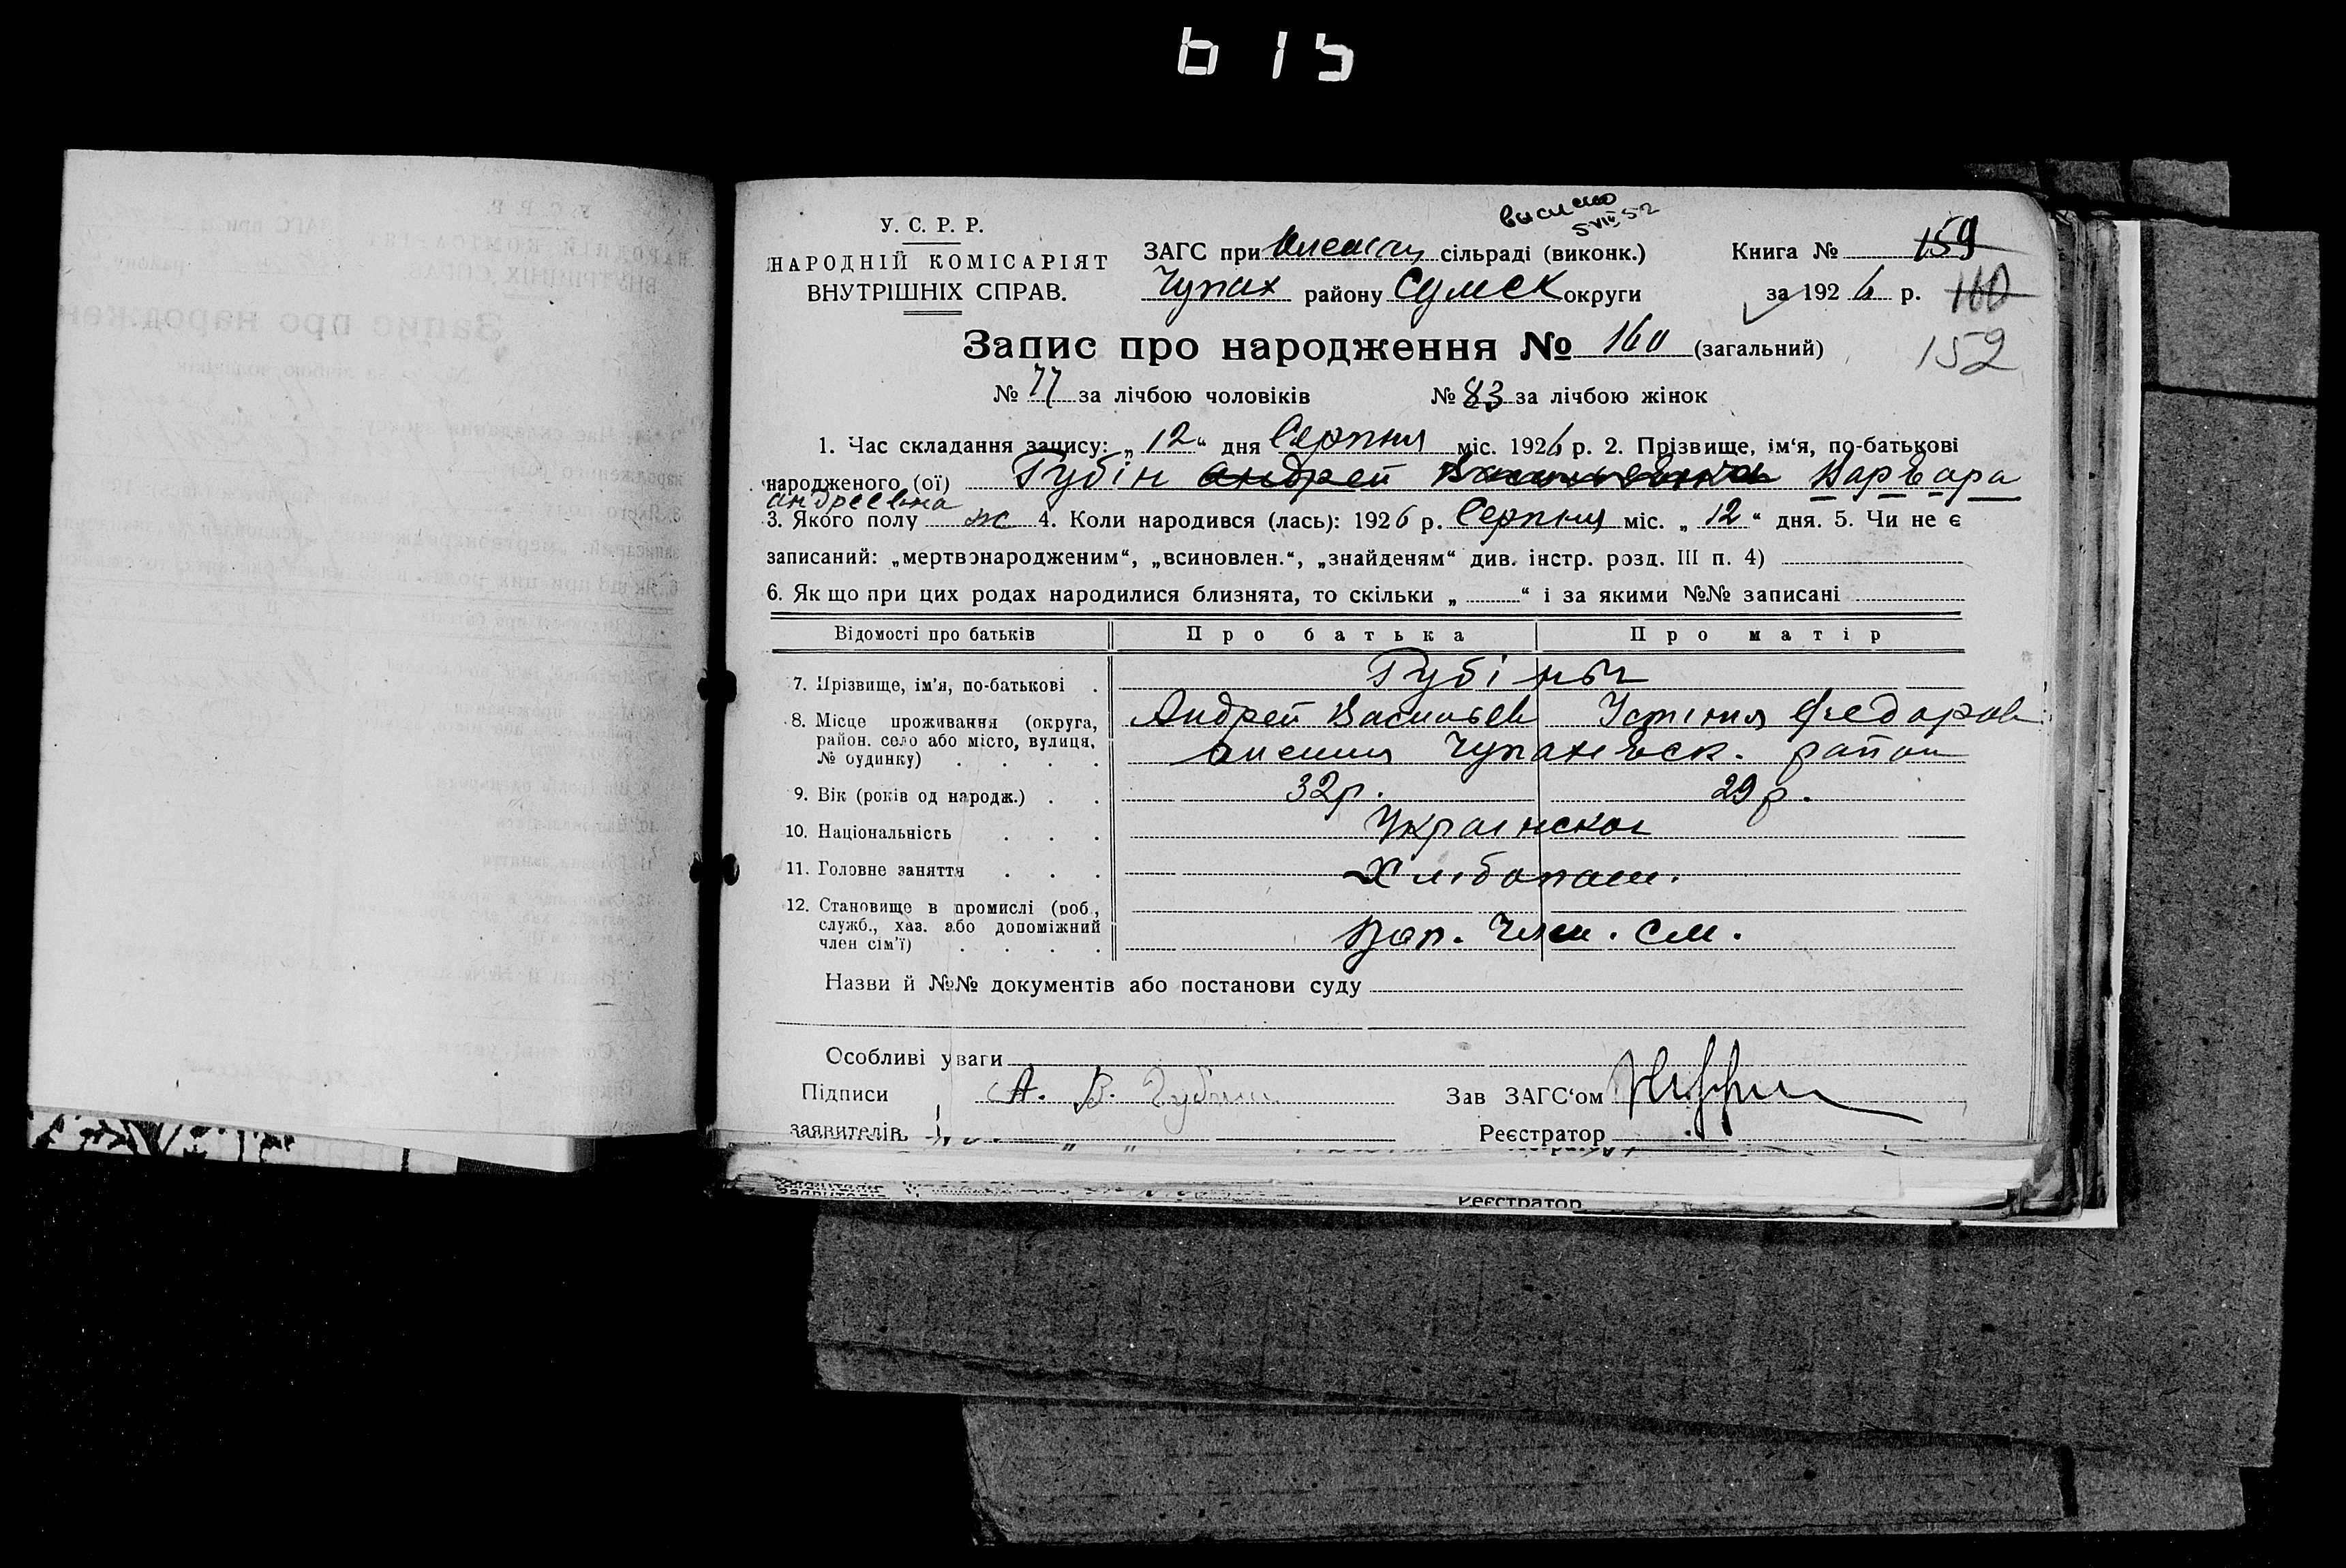 615
У. С. Р. Р.
НАРОДНІЙ КОМІСАРІЯТ
ВНУТРІШНІХ СПРАВ.
5 VIII 52
ЗАГС при сільраді (виконк.)
Чупах району Сумск округи
Книга № 159
за 1926 р. 160
152
Запис про народження № 160 (загальний)
№ 77 за лічбою чоловіків № 83 за лічбою жінок
1. Час складання запису: „ 12 “ дня Серпня міс. 1926 р. 2. Прізвище, ім‘я, по-батькові
народженого (ої) Губін Андрей Варвара
Андреевна
3. Якого полу ж 4. Коли народився (лась): 1926 р. Серпня міс. „ 12 “ дня. 5. Чи не є
записаний: „мертвонародженим“, „всиновлен.“, „знайденям“ див. інстр. розд. III п. 4)
6. Як що при цих родах народилися близнята, то скільки „ “ і за якими №№ записані
Відомості про батьків Про батька Про матір
7. Прізвище, ім’я, по-батькові Губіны
8. Місце проживання (округа, Андрей Васильев Устіния Федоров
район. село або місто, вулиця,
№ будинку) Чупаховск. район
9. Вік (років од народж.) 32 р. 29 р.
10. Національність Украінская
11. Головне заняття Хлібопаш.
12. Становище в промислі (роб.,
служб., хаз. або допоміжний
член сім’ї) Член. см.
Назви й №№ документів або постанови суду
Особливі уваги
Підписи А. В. Губин Зав ЗАГС‘ом
заявителів Реєстратор
Реєстратор